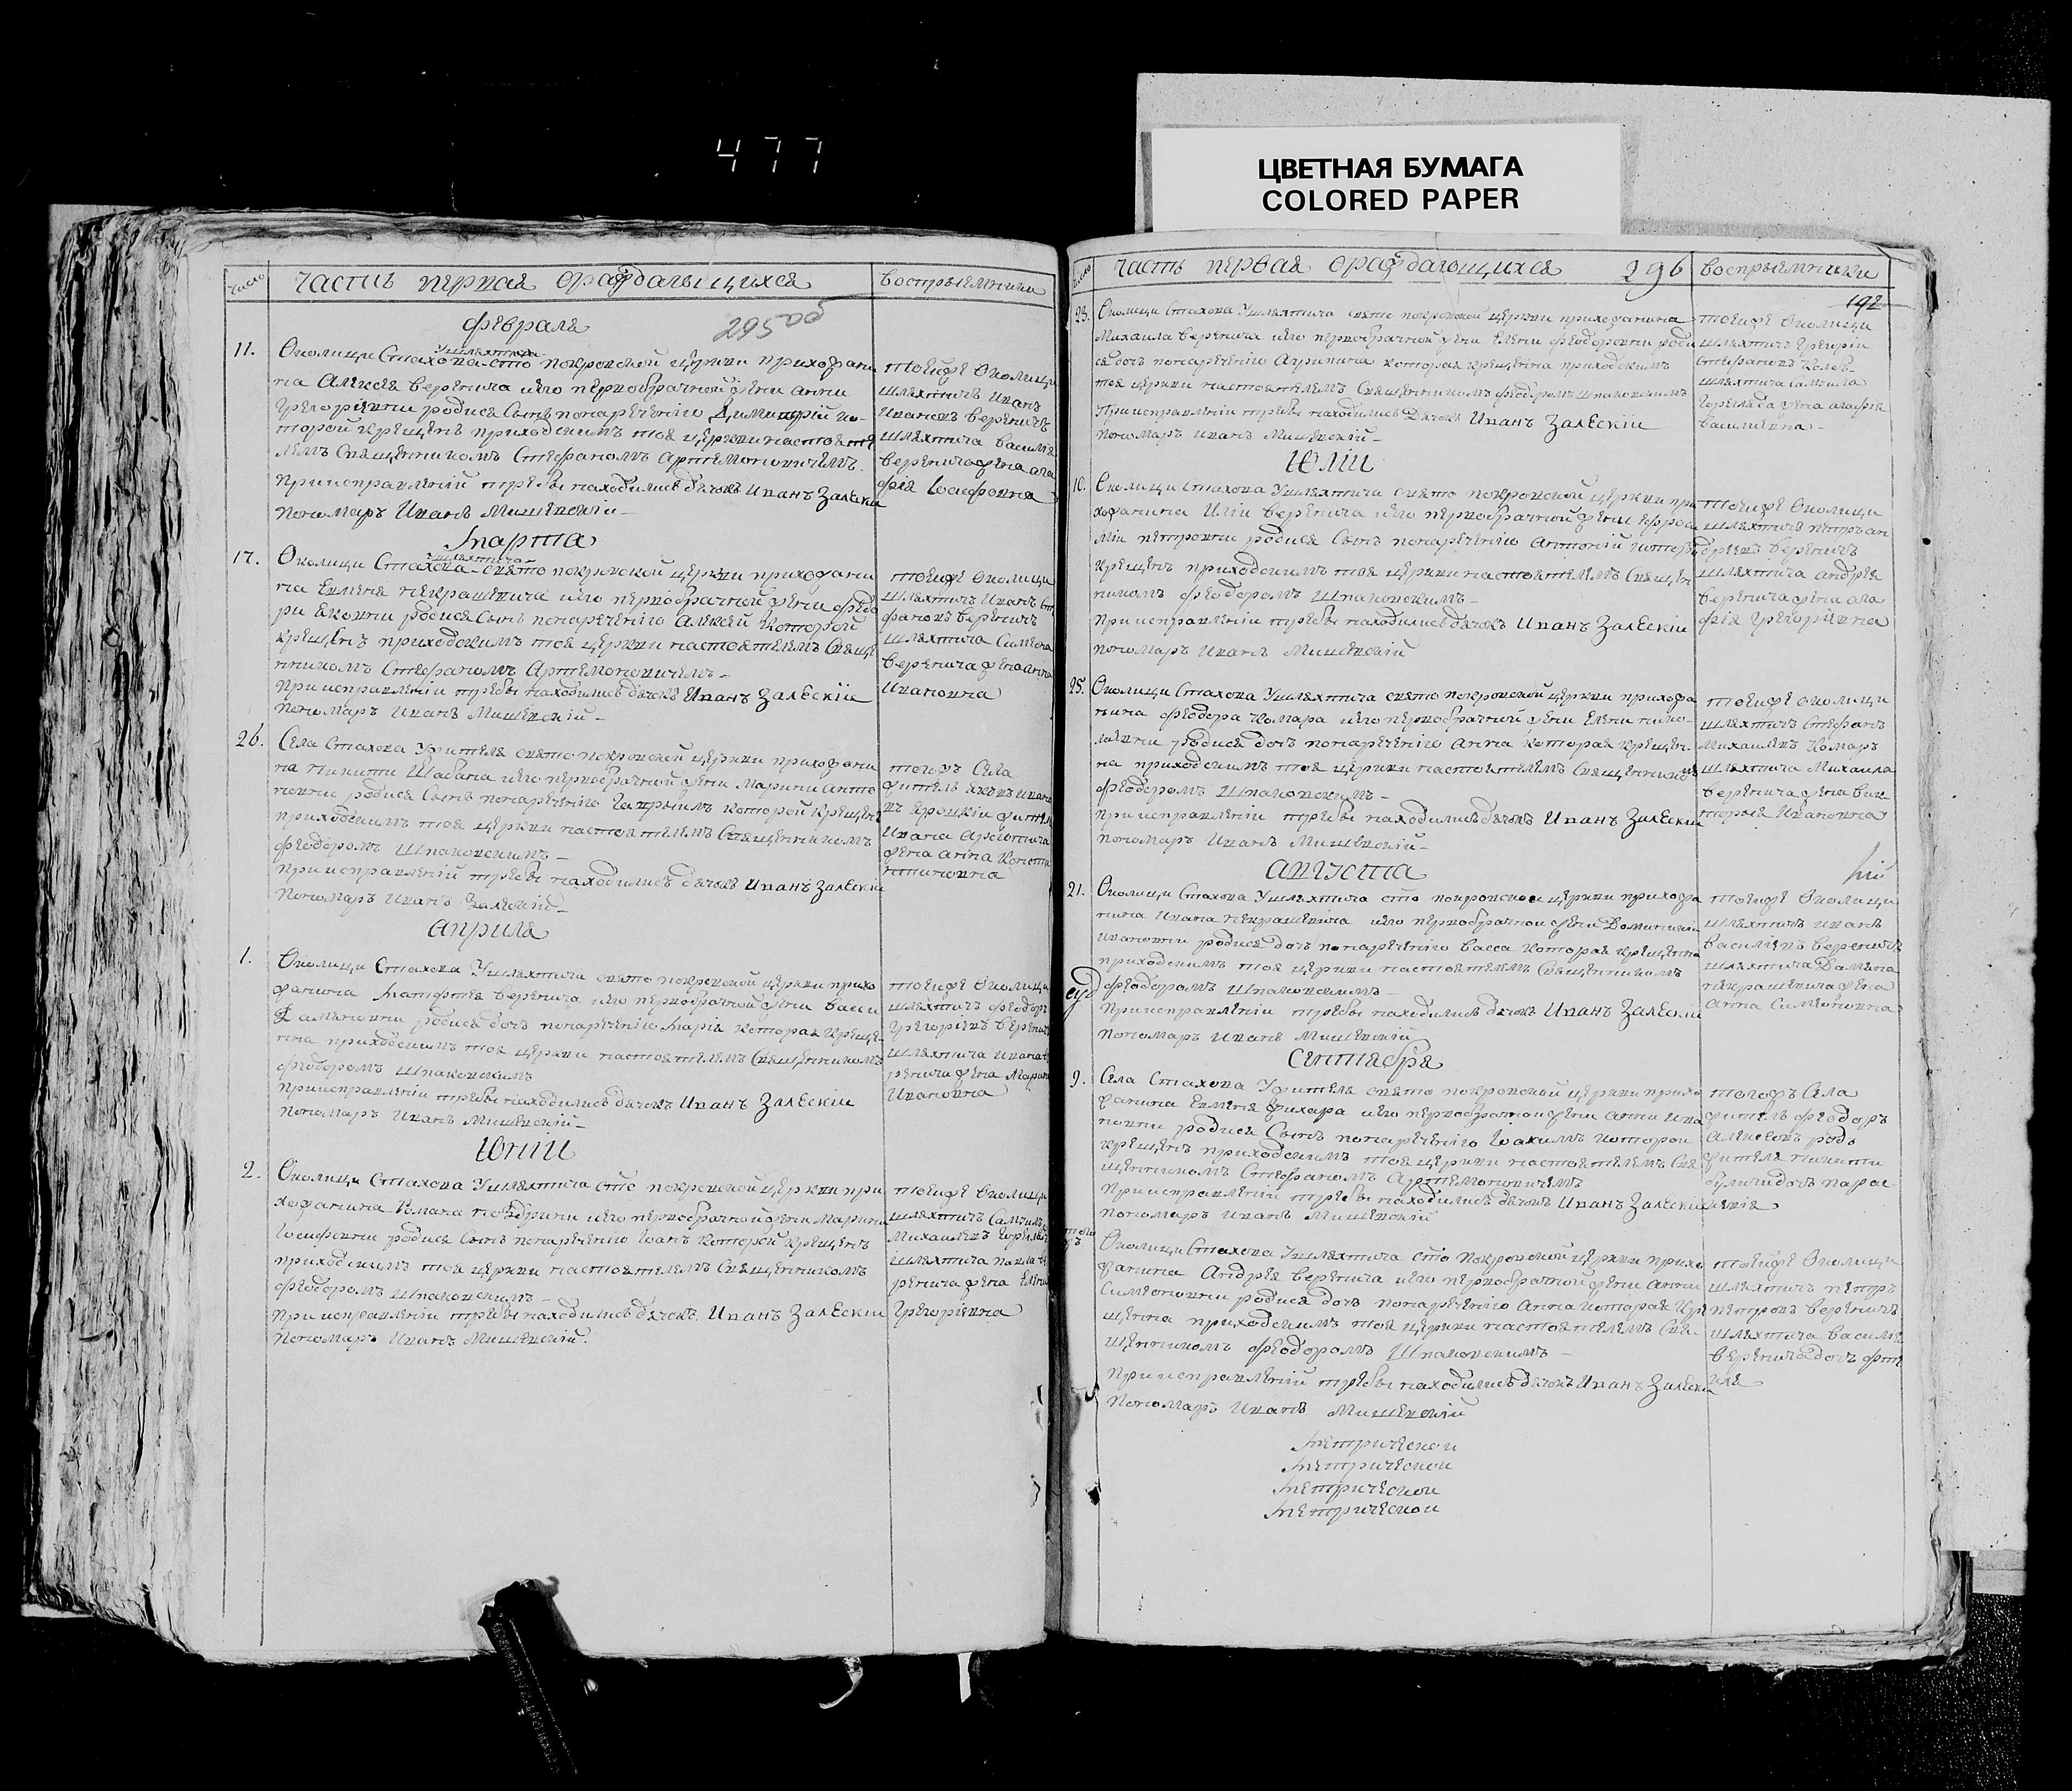 477
ЦВЕТНАЯ БУМАГА
COLORED PAPER
Число
часть первая ораждающихся
восприемники
295 об
февраля
11.
Околици Стахова Ушляхтича сто покровской церкви прихожани
на Алексея Веренича и его первобрачной жены Анны
Григоріевны родися Сынъ понареченію Димитрій ко-
торой крещенъ приходскимъ тоя церкви настояте
лемъ Священникомъ Стефаномъ Артемоновичемъ.
При исправленій требы находились дячокъ Иванъ Залескій
пономаръ Иванъ Мишевскій
тоейже Околицы
шляхтичъ Иванъ
Ивановъ Вереничъ
шляхтича Василія
Веренича жена ага
фія Іосифовна
Марта
17.
Околици Стахова Ушляхтича свято покровской церкви прихожани
на Евменя Некрашевича и его первобрачной жены Федо
ри Яковны родися Сынъ понареченію Алексей которой
крещенъ приходскимъ тоя церкви настоятелемъ Свяще
нникомъ Стефаномъ Артемоновичемъ
При исправленіи требы находились дячокъ Иванъ Залескіи
пономаръ Иванъ Мишевскій
тоейже Околицы
шляхтичъ Иванъ Сте
фановъ Вереничъ
шляхтича Симеона
Веренича жена Анна
Ивановна
26.
Села Стахова Ужителя свято покровской церкви прихожани
на Никити Шабана и его первобрачной жены Марини Анто
новны родися Сынъ понареченію Гавріилъ которой крещенъ
приходскимъ тоя церкви настоятелемъ Священникомъ
Феодоромъ Шпаковскимъ
При исправленій требы находились дячокъ Иванъ Залескіи
пономаръ Иванъ
тогожъ Села
житель
Ивана
жена Анна Конста
нтиновна
Априля
1.
Околици Стахова Ушляхтича свято покровской церкви прихо
жанина Матфея Веренича и его первобрачной жены Васси
родися дочь понареченію Марія которая креще
на приходскимъ тоя церкви настоятелемъ Священникомъ
Феодоромъ Шпаковскимъ
При исправленіи требы находились дячокъ Иванъ Залескіи
пономаръ Иванъ Мишевскій
тоейже Околицы
шляхтичъ Феодоръ
Григоріевъ Веренич
шляхтича Ивана Ве
ренича жена Марина
Ивановна
Юніи
2.
Околици Стахова Ушляхтича сто покровской церкви при
хожанина Романа и его первобрачной жены Марины
Іосифовны родися Сынъ понареченію Іоанъ которой крещенъ
приходскимъ тоя церкви настоятелемъ Священникомъ
Феодоромъ Шпаковскимъ
При исправленіи требы находились дячокъ Иванъ Залескіи
пономаръ Иванъ Мишевскій.
тоейже Околицы
шляхтичъ Самуилъ
Михаиловъ
шляхтича Павла Ве
ренича жена Елена
Григоріевна
Число
часть первая ораждающихся
296
восприемники
192
23.
Околици Стахова Ушляхтича свято покровской церкви прихожанина
Михаила Веренича и его первобрачной жены Елены Феодоровны роди
ся дочь понареченію Агрипина которая крещенна приходскимъ
тоя церкви настоятелемъ Священникомъ Феодоромъ Шпаковскимъ
При исправленіи требы находились Дячокъ Иванъ Залескіи
пономаръ Иванъ Мишевскій
тоейже Околицы
шляхтичъ Григоріи
Стефановъ
шляхтича Самуила
жена Агафія
Василіевна
Юліи
10.
Околици Стахова Ушляхтича свято покровской церкви при
хожанина Иліи Веренича и его первобрачной жены Ефроси
міи Петровны родися Сынъ понареченію Антоній которой
крещенъ приходскимъ тоя церкви настоятелемъ Священ
никомъ Феодоромъ Шпаковскимъ
При исправленіи требы находились дячокъ Иванъ Залескіи
пономаръ Иванъ Мишевскій
тоейже Околицы
шляхтичъ Петръ Ан
дреевъ Вереничъ
шляхтича Андрея
Веренича жена Ага
фія Григоріевна
25.
Околици Стахова Ушляхтича свято покровской церкви прихожа
нина Феодора Комара и его первобрачной жены Елены Нико-
лаевны родися дочь понареченію Анна которая крещен-
на приходскимъ тоя церкви настоятелемъ Священникомъ
Феодоромъ Шпаковскимъ
При исправленіи требы находились дячокъ Иванъ Залескіи
пономаръ Иванъ Мишевскій
тоейже Околицы
шляхтичъ Стефанъ
Михаилевъ Комаръ
шляхтича Михаила
Веренича жена Вик
торія Ивановна
Августа
21.
Околици Стахова Ушляхтича сто покровской церкви прихожа
нина Ивана Некрашевича и его первобрачной жены Доминикіи
Ивановны родися дочь понареченію Васса которая крещенна
приходскимъ тоя церкви настоятелемъ Священникомъ
Феодоромъ Шпаковскимъ
При исправленіи требы находились дячокъ Иванъ Залескіи
пономаръ Иванъ Мишевскій
тоейже Околицы
шляхтичъ Иванъ
Василіевъ Вереничъ
шляхтича Даміана
Некрашевича жена
Анна Симеоновна
Сентября
9.
Села Стахова Ужителя свято покровской церкви прихо
жанина Евменя и его первобрачной жены Анны Ива
новны родися Сынъ понареченію Іоакимъ которой
крещенъ приходскимъ тоя церкви настоятелемъ Свя
щенникомъ Стефаномъ Артемоновичемъ
При исправленій требы находились дячокъ Иванъ Залескіи
пономаръ Иванъ Мишевскій
тогожъ Села
житель Феодоръ
Алексеевъ
жителя Никити
дочь Парас
кевія
того
жъ
Околици Стахова Ушляхтича сто Покровской церкви прихо
жанина Андрея Веренича и его первобрачной жены Анны
Симеоновны родися дочь понареченію Анна которая кре
щенна приходскимъ тоя церкви настоятелемъ Свя-
щенникомъ Феодоромъ Шпаковскимъ
При исправленій требы находились дячокъ Иванъ Залескіи
пономаръ Иванъ Мишевскій
тоейже Околицы
шляхтичъ Петръ
Петровъ Вереничъ
шляхтича Василія
Веренича дочь
Метрической
Метрической
Метрической
Метрической